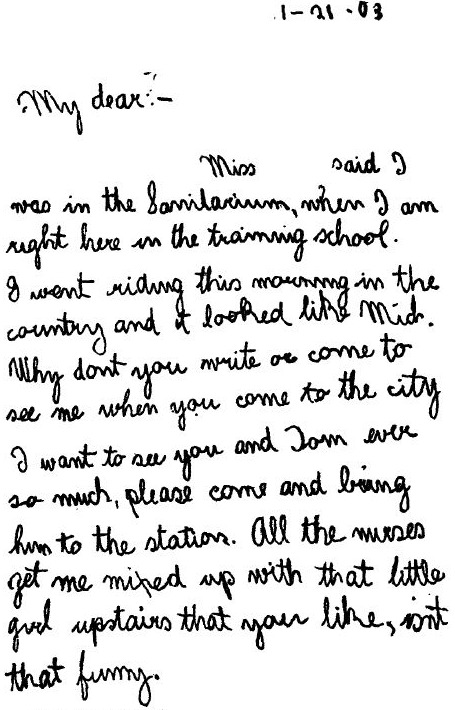 1-21-03
My dear:-
Miss said I
was in the Sanitarium, when I am
right here in the training school.
I went riding this mourning in the
country and it looked like Mich.
Why dont you write or come to
see me when you come to the city
I want to see you and Tom ever
so much, please come and bring
him to the station. All the nurses
get me mixed up with that little
girl upstairs that your like, isnt
that funny.